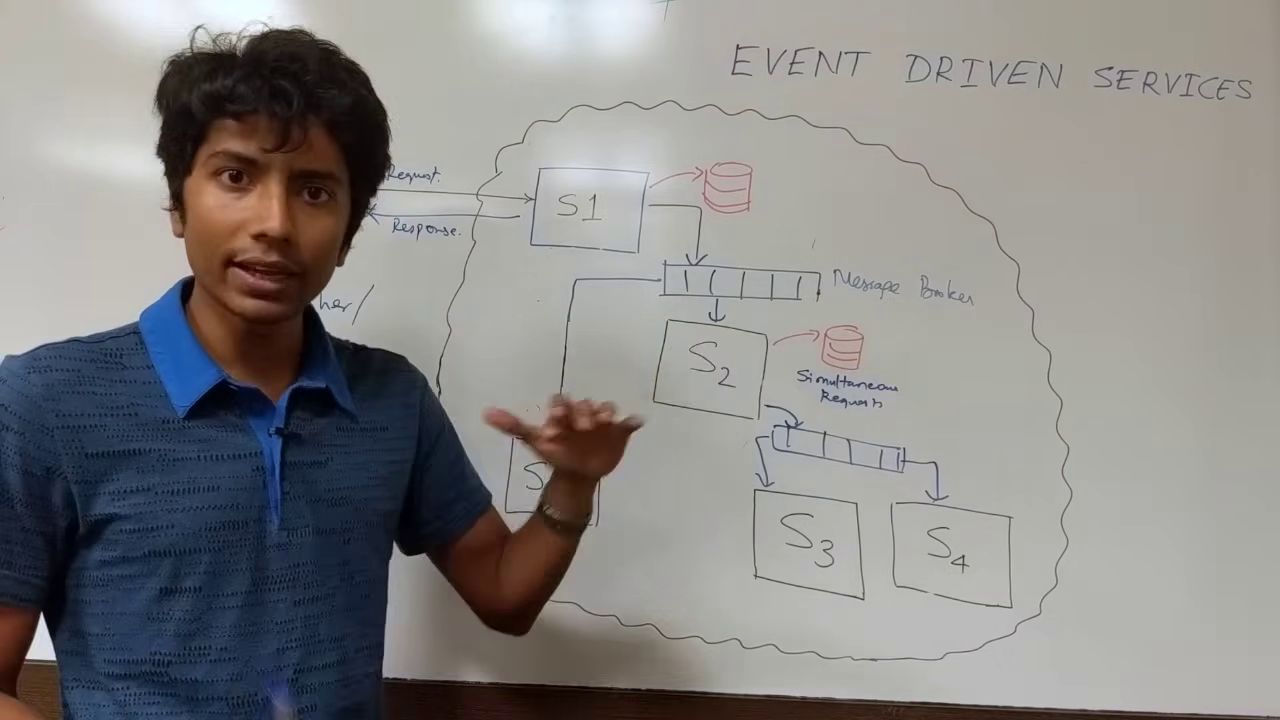 EVENT DRIVEN SERVICES
Request.
Response.
S1
Message Broker
her/
S2
Simultaneous
Requests
S
S3
S4